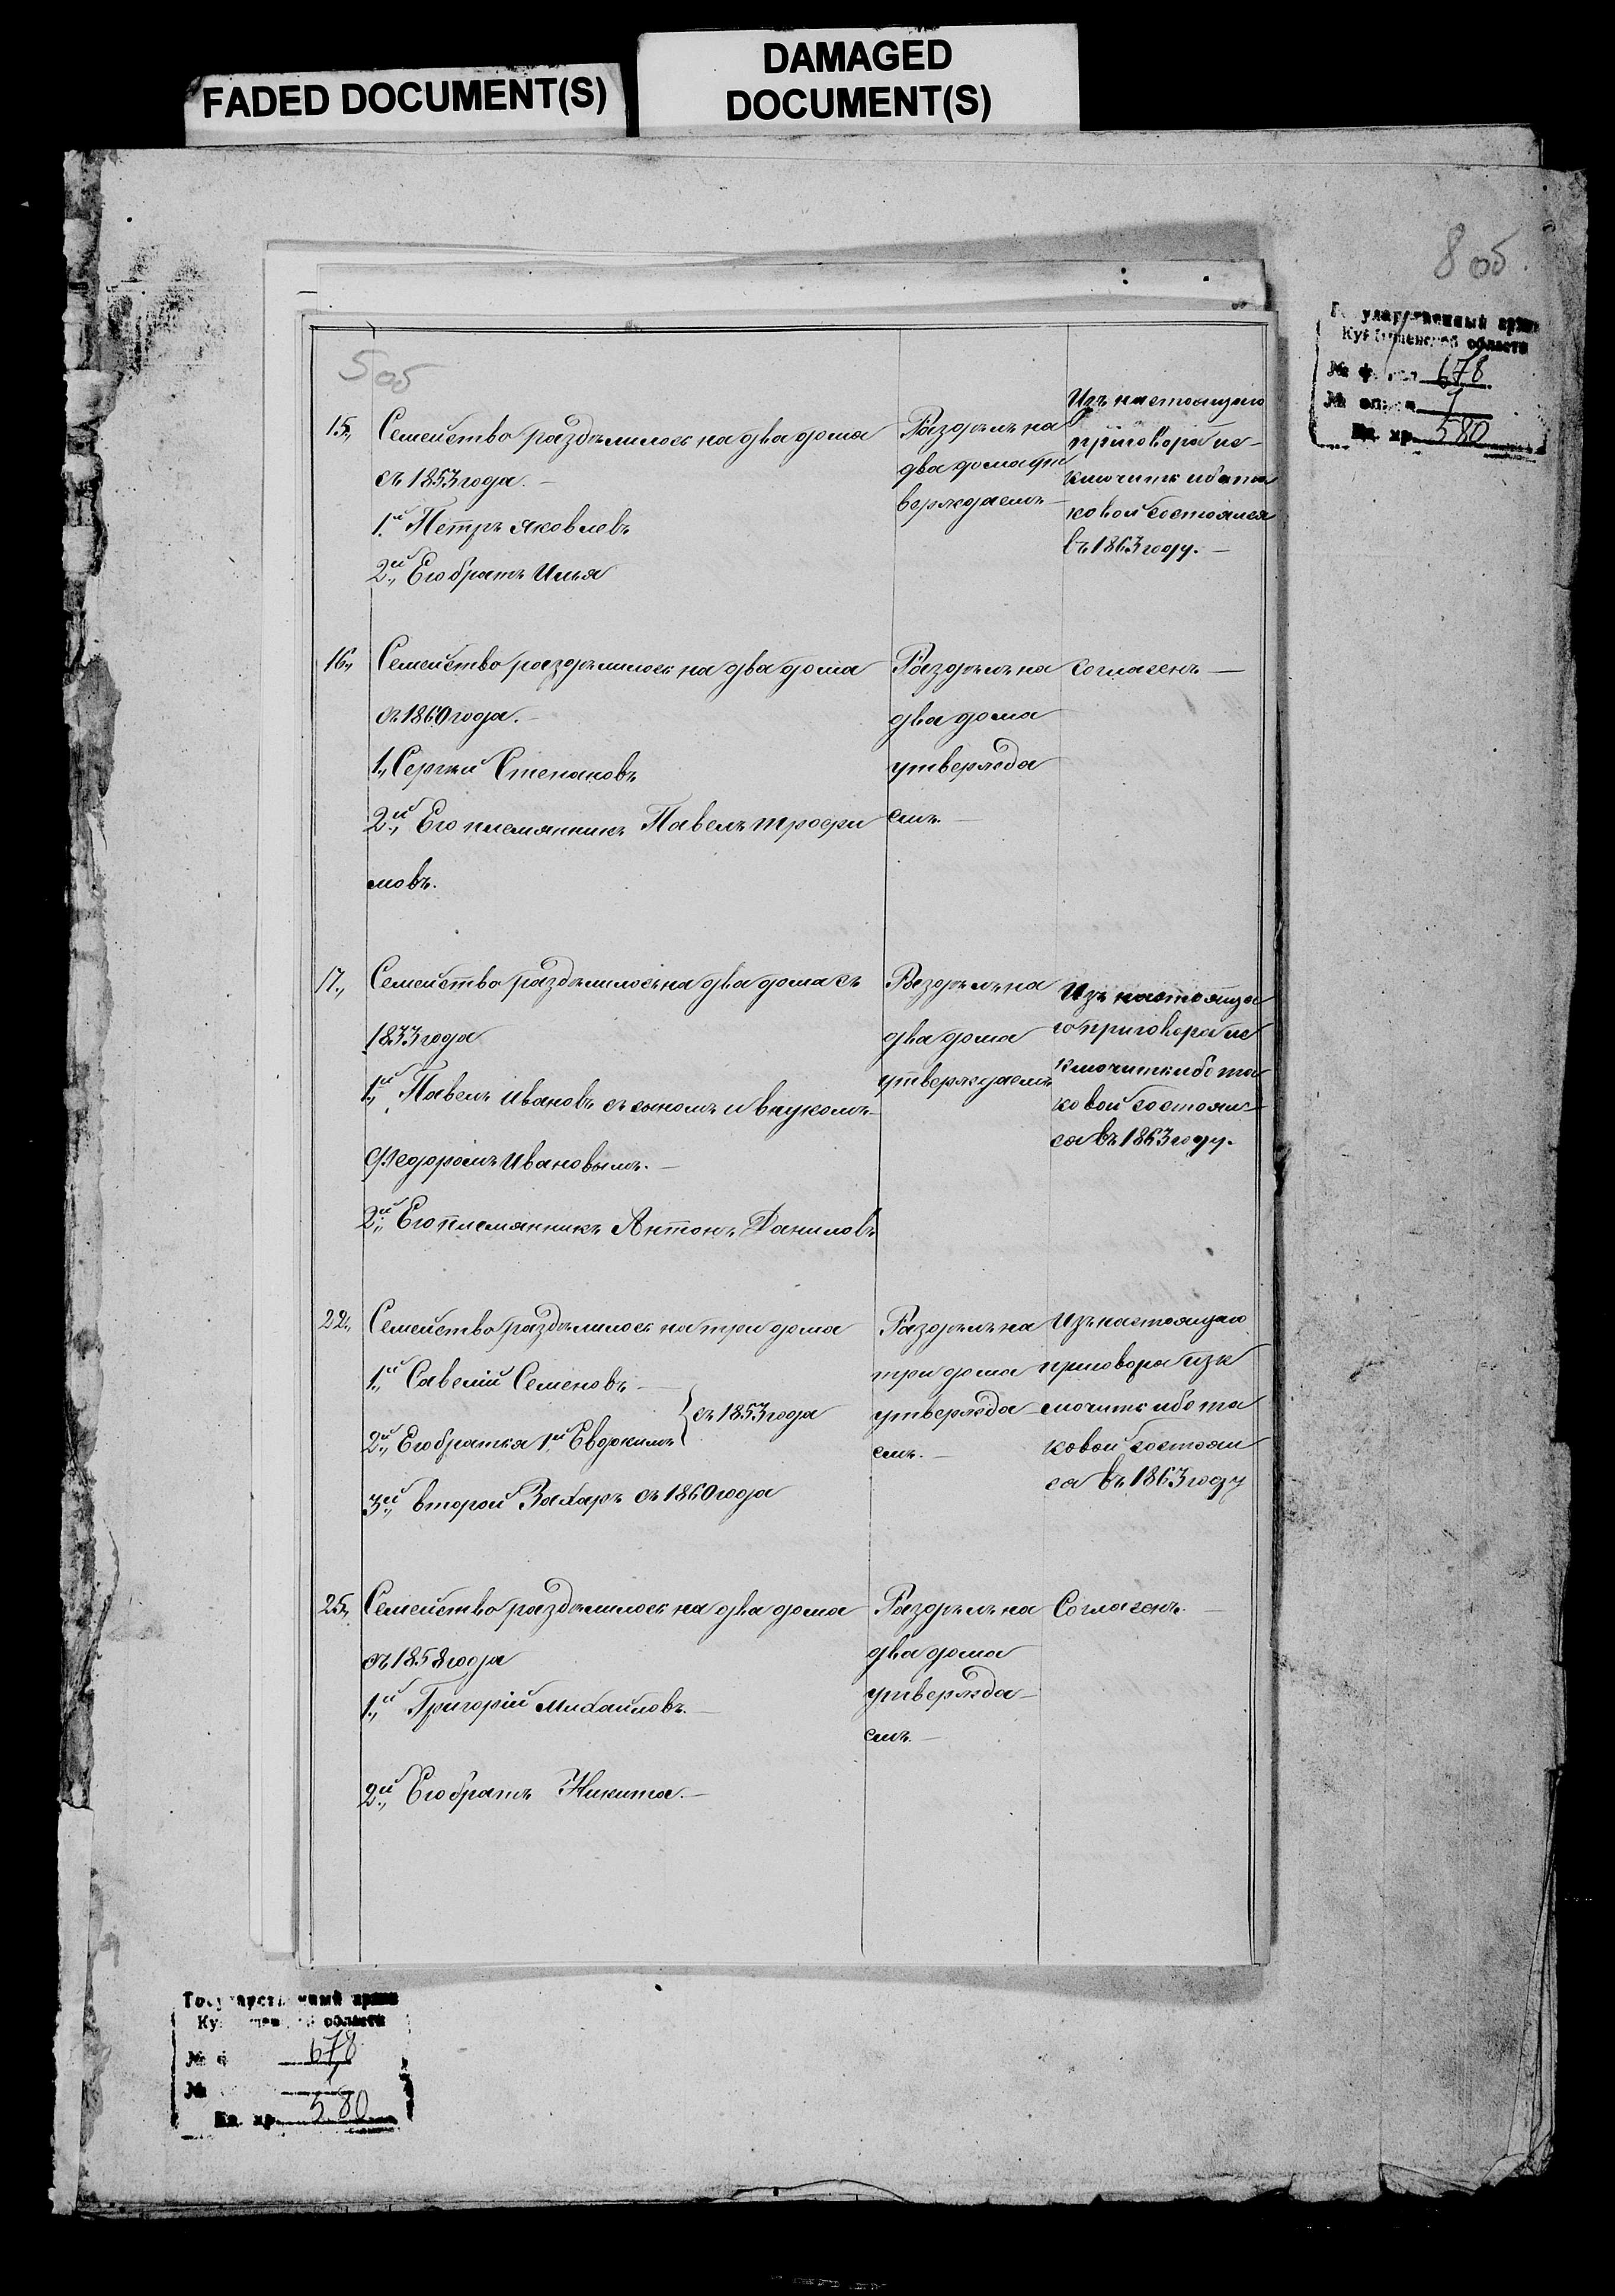 FADED DOCUMENT(S)
DAMAGED
DOCUMENT(S)
8 об.
архив
области
678
1
Ед. хр. 580
5 об
15., Семейство раздѣлилось на два дома
съ 1853 года. –
1.й Петръ Яковлевъ
2.й Его братъ Илья
Раздѣлъ на
два дома ут
верждаемъ –
Изъ настоящаго
приговора ис-
ключить ибо та
ковой состоялся
въ 1863 году. –
16., Семейство раздѣлилось на два дома
съ 1860 года. –
1., Сергѣй Степановъ
2.й Его племянникъ Павелъ Трофи
мовъ.
Раздѣлъ на
два дома
утвержда
емъ. –
Согласенъ –
17., Семейство раздѣлилось на два дома съ
1833 года
1.й Павелъ Ивановъ съ сыномъ и внукомъ
Федоромъ Ивановымъ. –
2.й Его племянникъ Антонъ Даниловъ
Раздѣлъ на
два дома
утверждаемъ
Изъ настояща
го приговора ис
ключить ибо та
ковой состоял-
ся въ 1863 году.
22., Семейство раздѣлилось на три дома
1.й Савелій Семеновъ –
2.й Его братья 1.й Евдокимъ } съ 1853 года
3.й второй Захаръ съ 1860 года
Раздѣлъ на
три дома
утвержда
емъ. –
Изъ настоящаго
приговора изк
лючить ибо та
ковой состоял
ся въ 1863 году
25., Семейство раздѣлилось на два дома
съ 1858 года
1.й Григорій Михайловъ. –
2.й Его братъ Никита. –
Раздѣлъ на
два дома
утвержда –
емъ. –
Согласенъ. –
архив
области
№ 678
№ 1
Ед. хр. 580